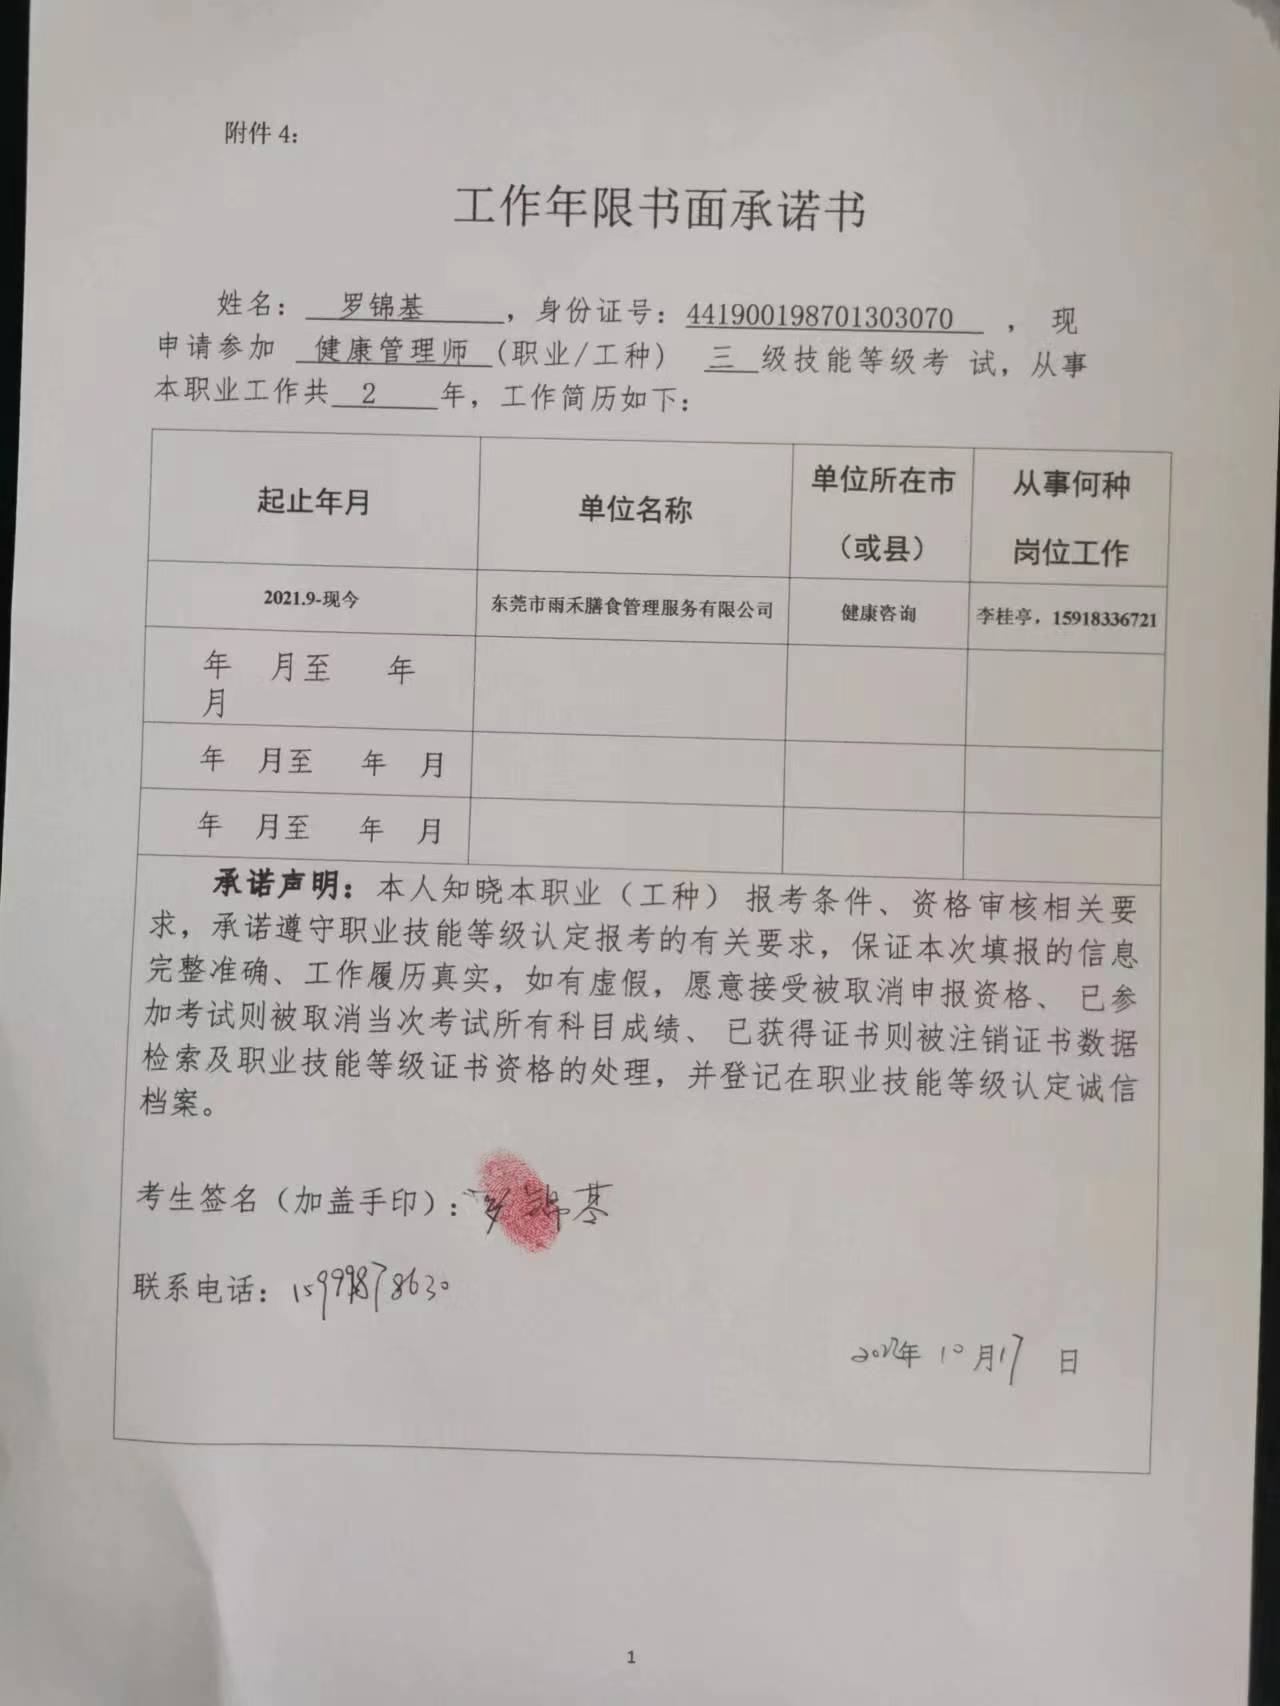 附件 4：
工作年限书面承诺书
姓名： 罗锦基 ，身份证号：441900198701303070 ， 现
申请参加 健康管理师 (职业/工种) 三 级技能等级考 试，从事
本职业工作共 2 年，工作简历如下：
起止年月 单位名称 单位所在市（或县） 从事何种岗位工作
2021.9-现今 东莞市雨禾膳食管理服务有限公司 健康咨询 李桂亭，15918336721
年 月至 年
月
年 月至 年 月
年 月至 年 月
承诺声明：本人知晓本职业（工种） 报考条件、资格审核相关要
求，承诺遵守职业技能等级认定报考的有关要求，保证本次填报的信息
完整准确、工作履历真实，如有虚假，愿意接受被取消申报资格、 已参
加考试则被取消当次考试所有科目成绩、 已获得证书则被注销证书数据
检索及职业技能等级证书资格的处理，并登记在职业技能等级认定诚信
档案。
考生签名（加盖手印）：罗锦基
联系电话：15999878630
年 10 月 17 日
1